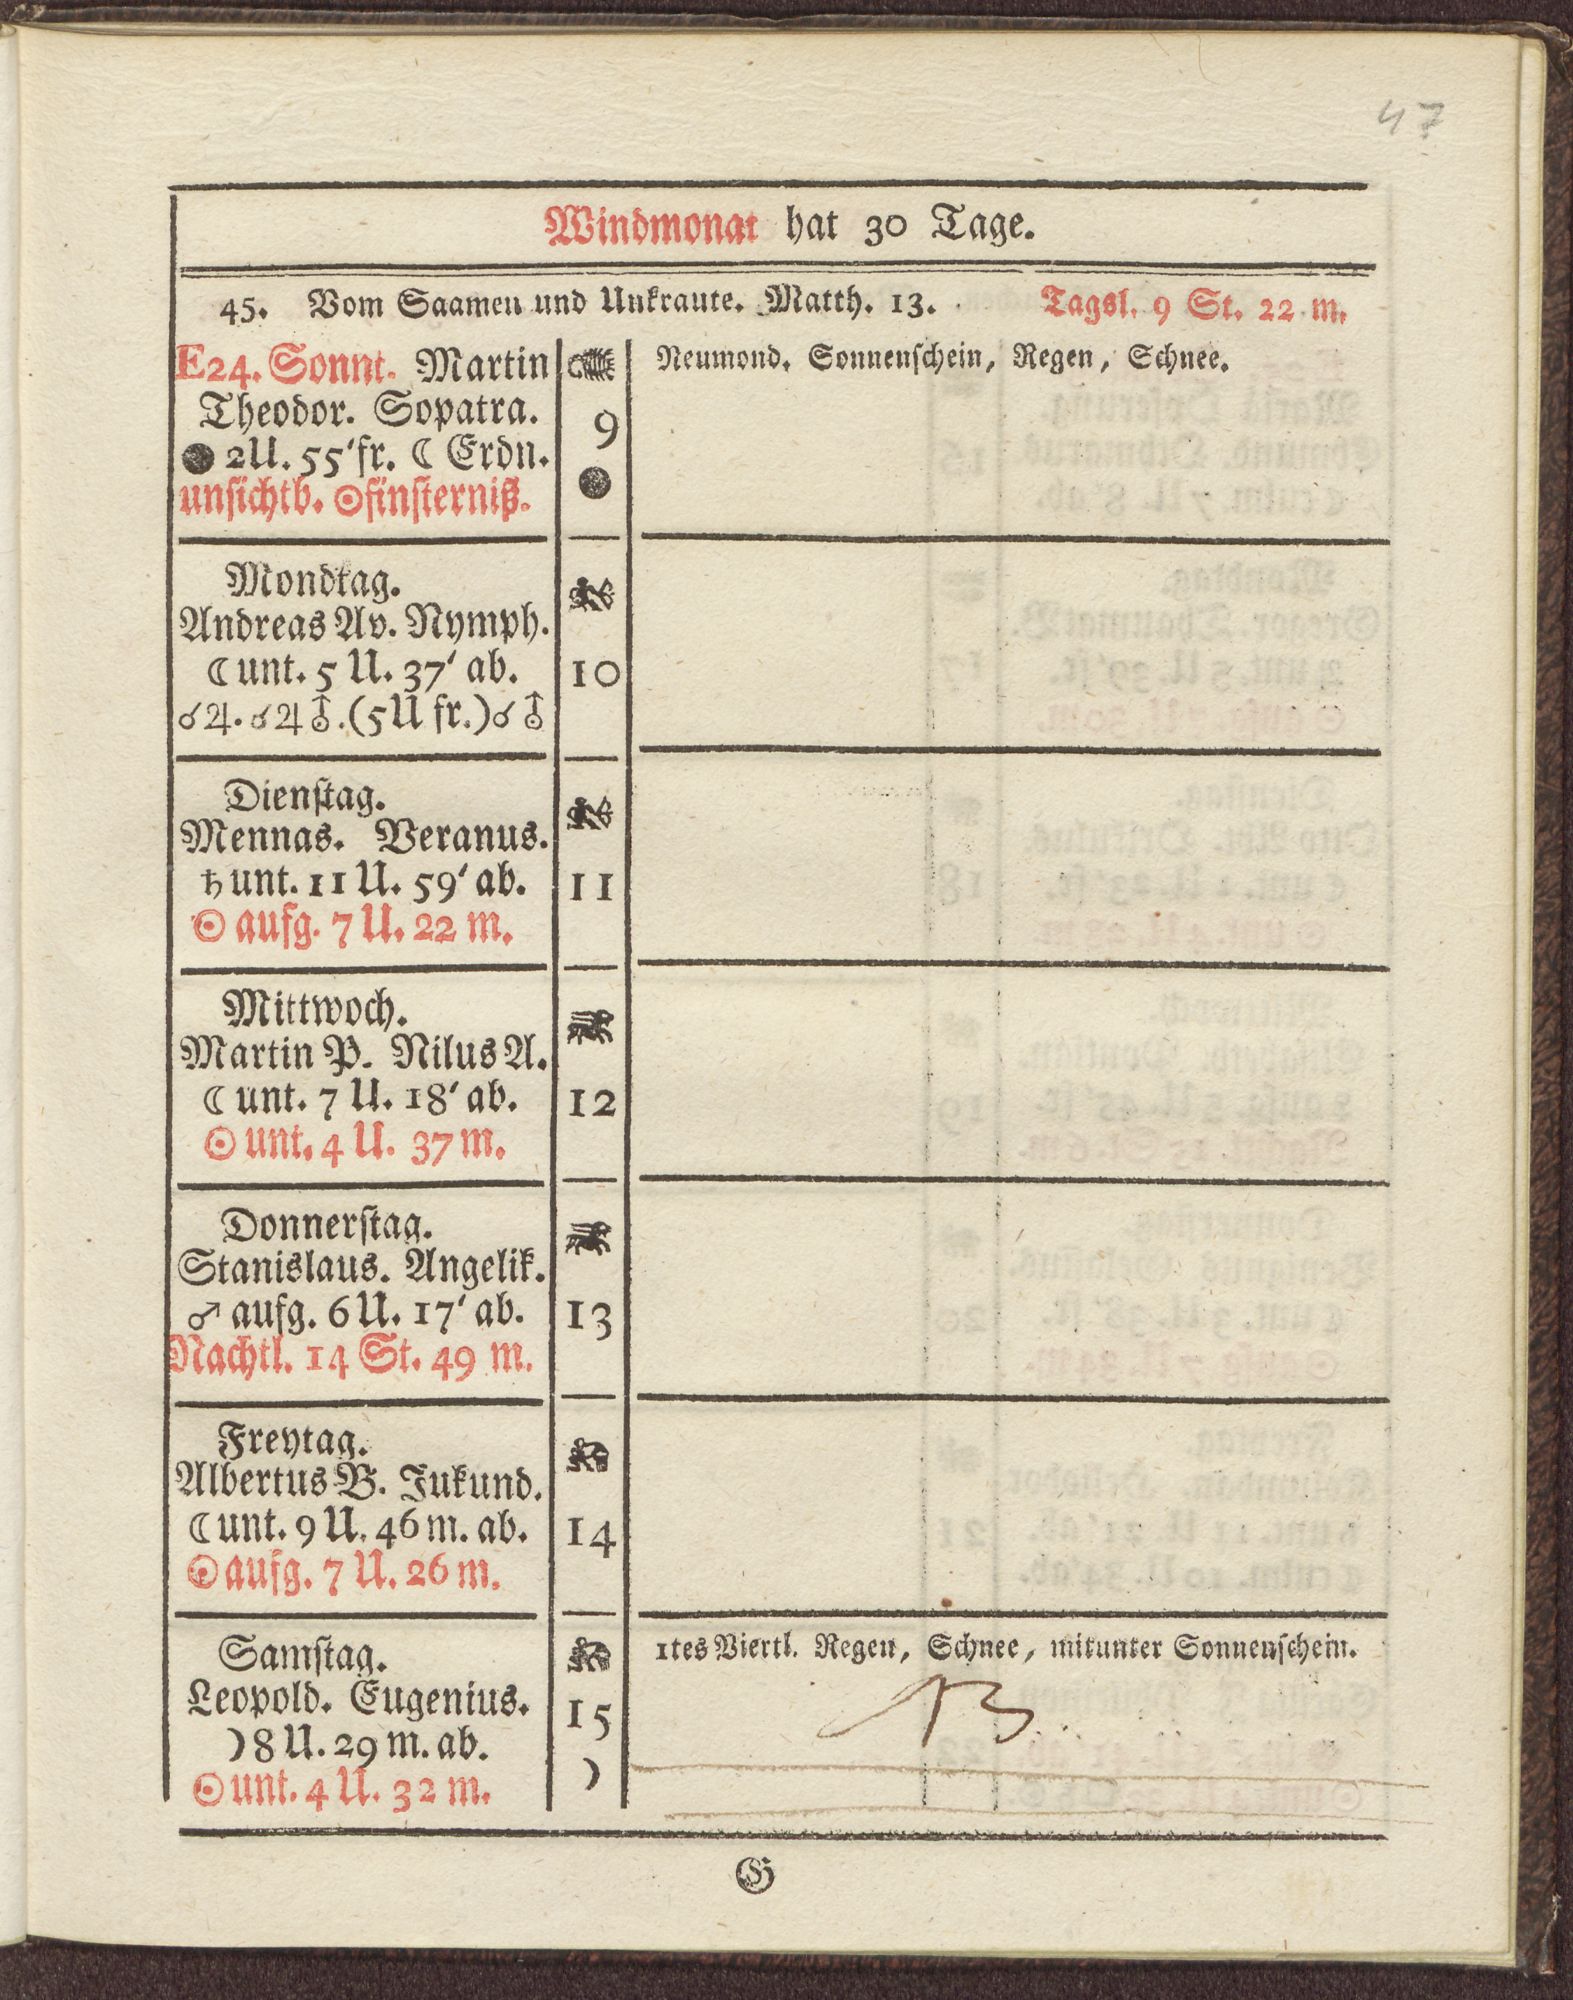 47
Windmonat hat 30 Tage.
45. Vom Saamen und Unkraute. Matth. 13. Tagsl. 9 St. 22 m.
E24. Sonnt. Martin
Theodor. Sopatra.
● 2U. 55′ fr. ☾ Erdn.
unsichtb. ☉finsterniß.
9
Neumond. Sonnenschein, Regen, Schnee.
Mondtag.
Andreas Av. Nymph.
☾ unt. 5 U. 37′ ab.
☌♃. ☌♃⛢.(5U fr.)☌⛢
10
Dienstag.
Mennas. Veranus.
♄ unt. 11 U. 59′ ab.
☉ aufg. 7 U. 22 m.
11
Mittwoch.
Martin P. Nilus A.
☾ unt. 7 U. 18′ ab.
☉ unt. 4 U. 37 m.
12
Donnerstag.
Stanislaus. Angelik.
♂ aufg. 6 U. 17′ ab.
Nachtl. 14 St. 49 m.
13
Freytag.
Albertus B. Jukund.
☾ unt. 9 U. 46 m. ab.
☉ aufg. 7 U. 26 m.
14
Samstag.
Leopold. Eugenius.
☽ 8 U. 29 m. ab.
☉ unt. 4 U. 32 m.
15
☽
1tes Viertl. Regen, Schnee, mitunter Sonnenschein.
G